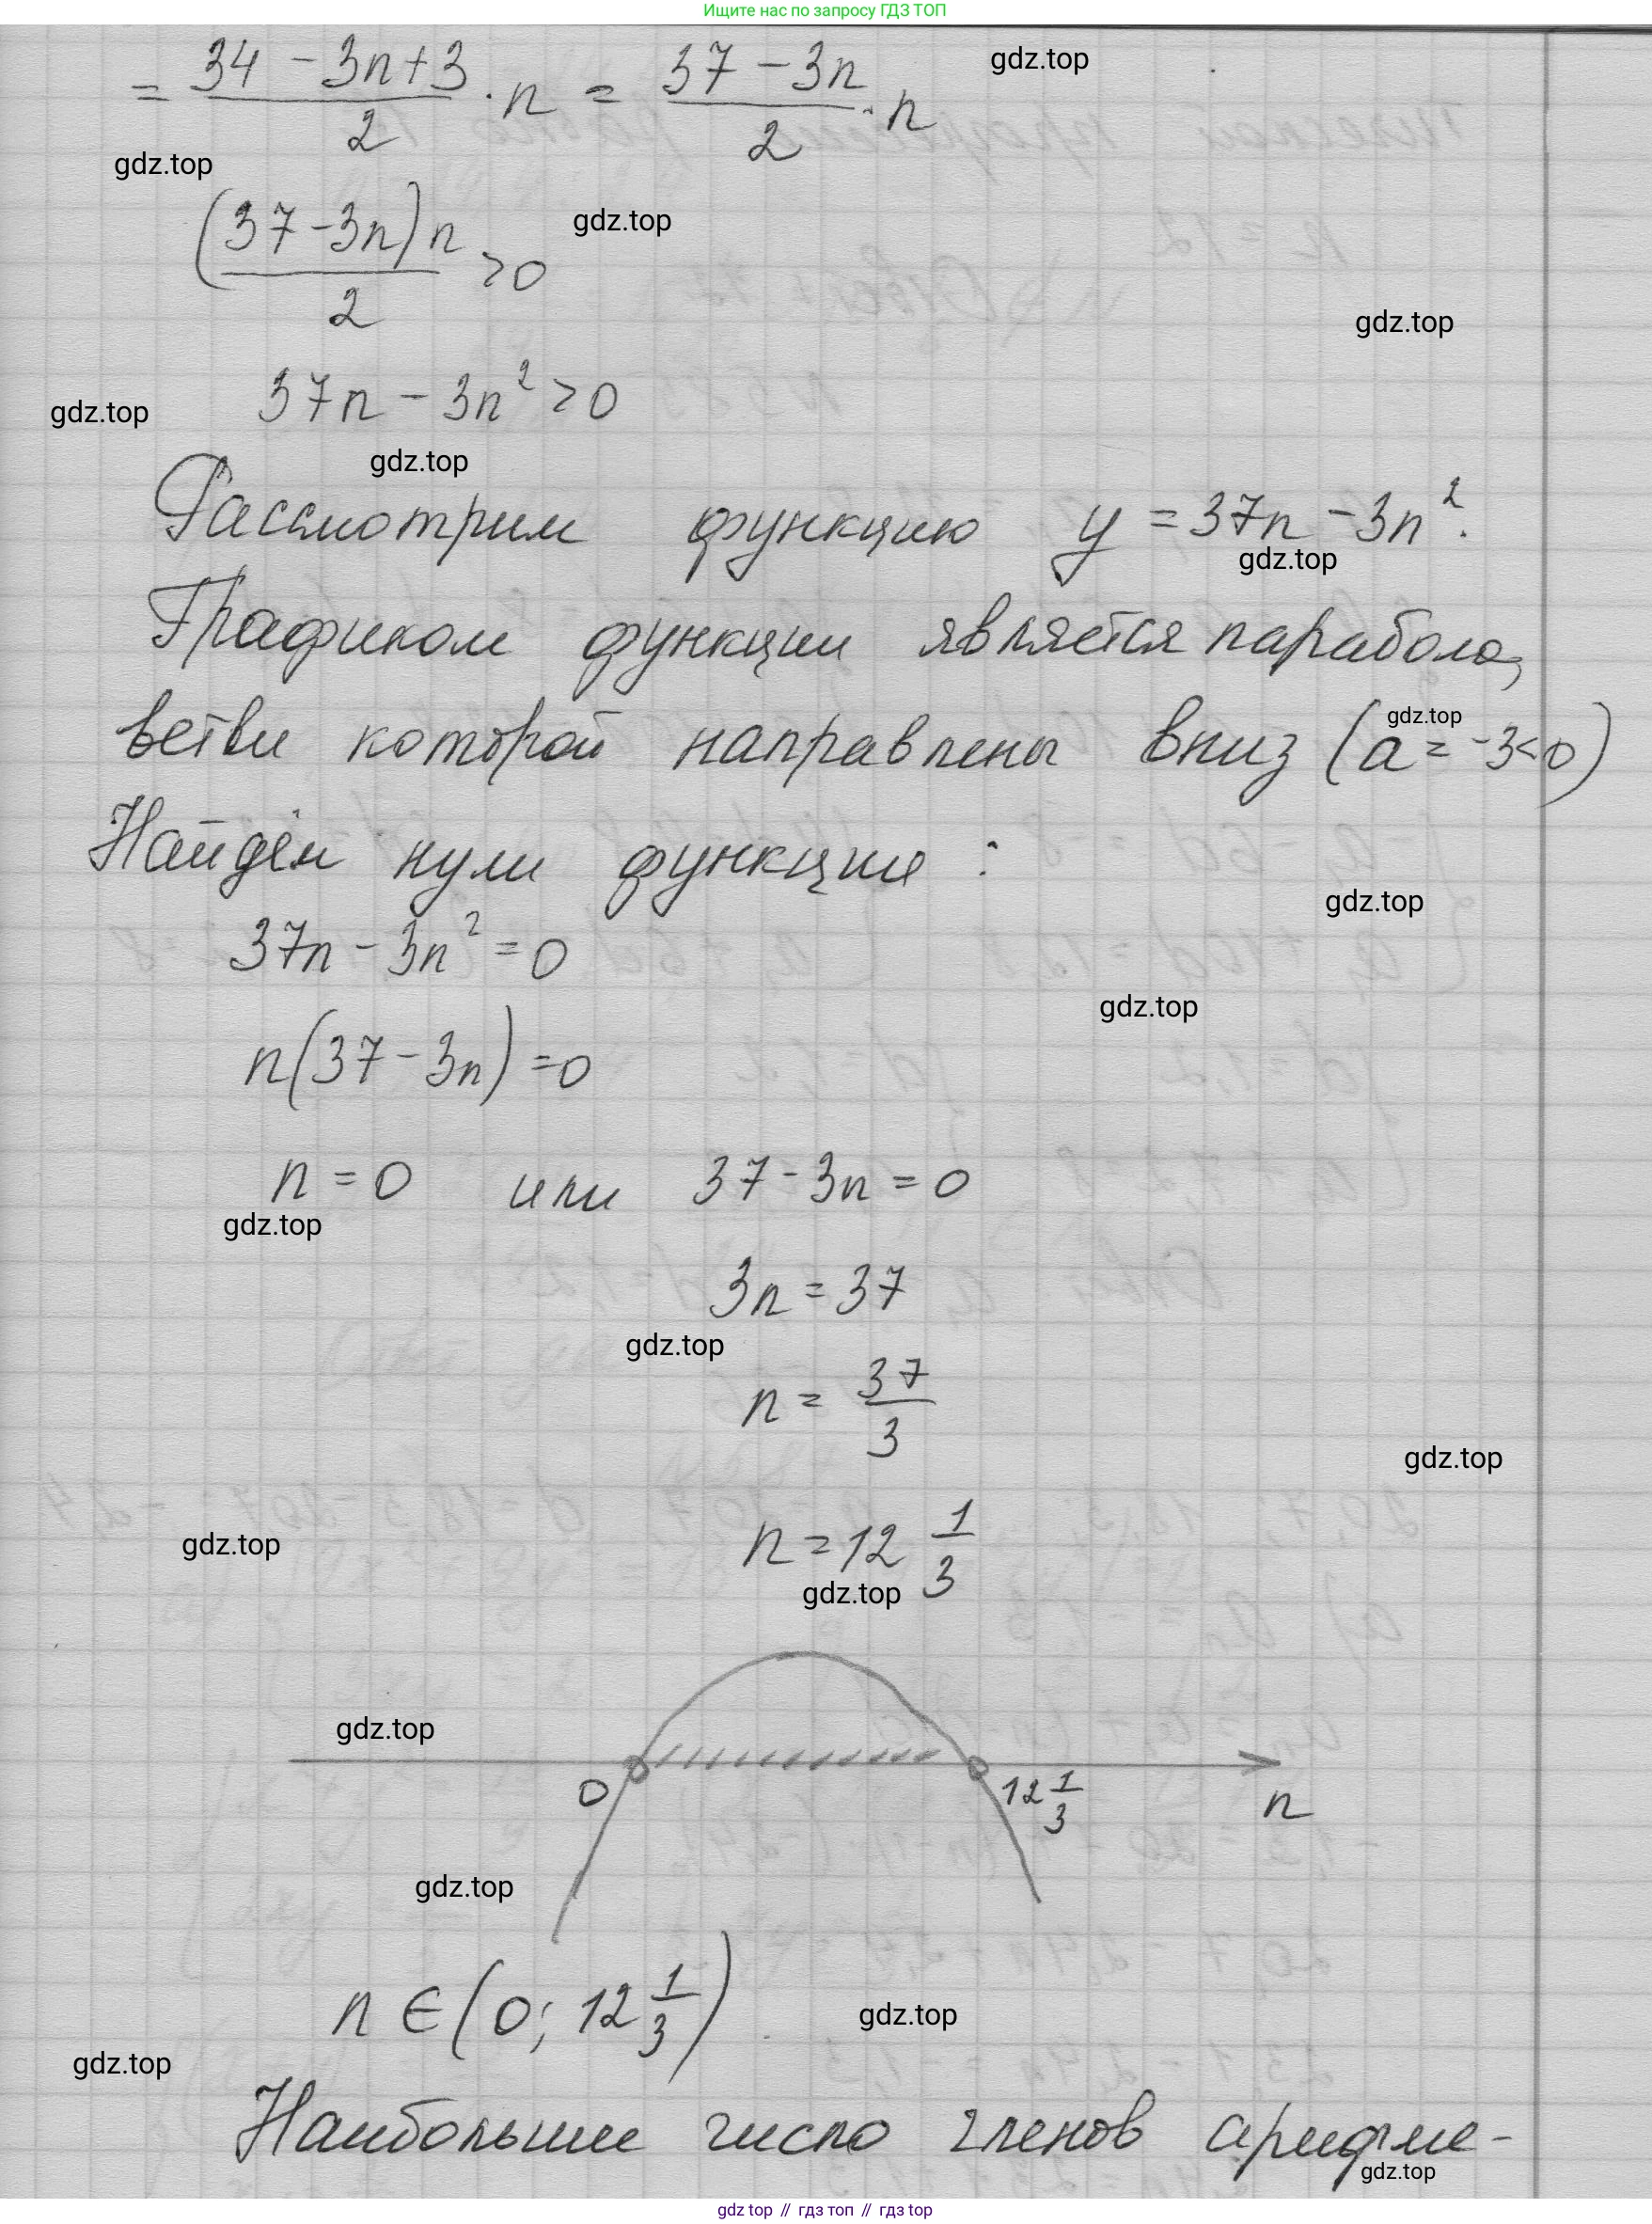 Ищите нас по запросу ГДЗ ТОП
= (34 - 3n + 3)/2 · n = (37 - 3n)/2 · n
gdz.top
gdz.top
((37 - 3n)n)/2 > 0
gdz.top
gdz.top
37n - 3n² > 0
gdz.top
gdz.top
Рассмотрим функцию y = 37n - 3n².
gdz.top
Графиком функции является парабола,
ветви которой направлены вниз (a = -3 < 0)
gdz.top
Найдём нули функции:
gdz.top
37n - 3n² = 0
gdz.top
n(37 - 3n) = 0
n = 0 или 37 - 3n = 0
gdz.top
3n = 37
gdz.top
n = 37/3
gdz.top
n = 12 1/3
gdz.top
gdz.top
gdz.top
0 12 1/3 n
gdz.top
n ∈ (0; 12 1/3)
gdz.top
gdz.top
Наибольшее число членов арифме-
gdz.top
gdz top // гдз топ // гдз top